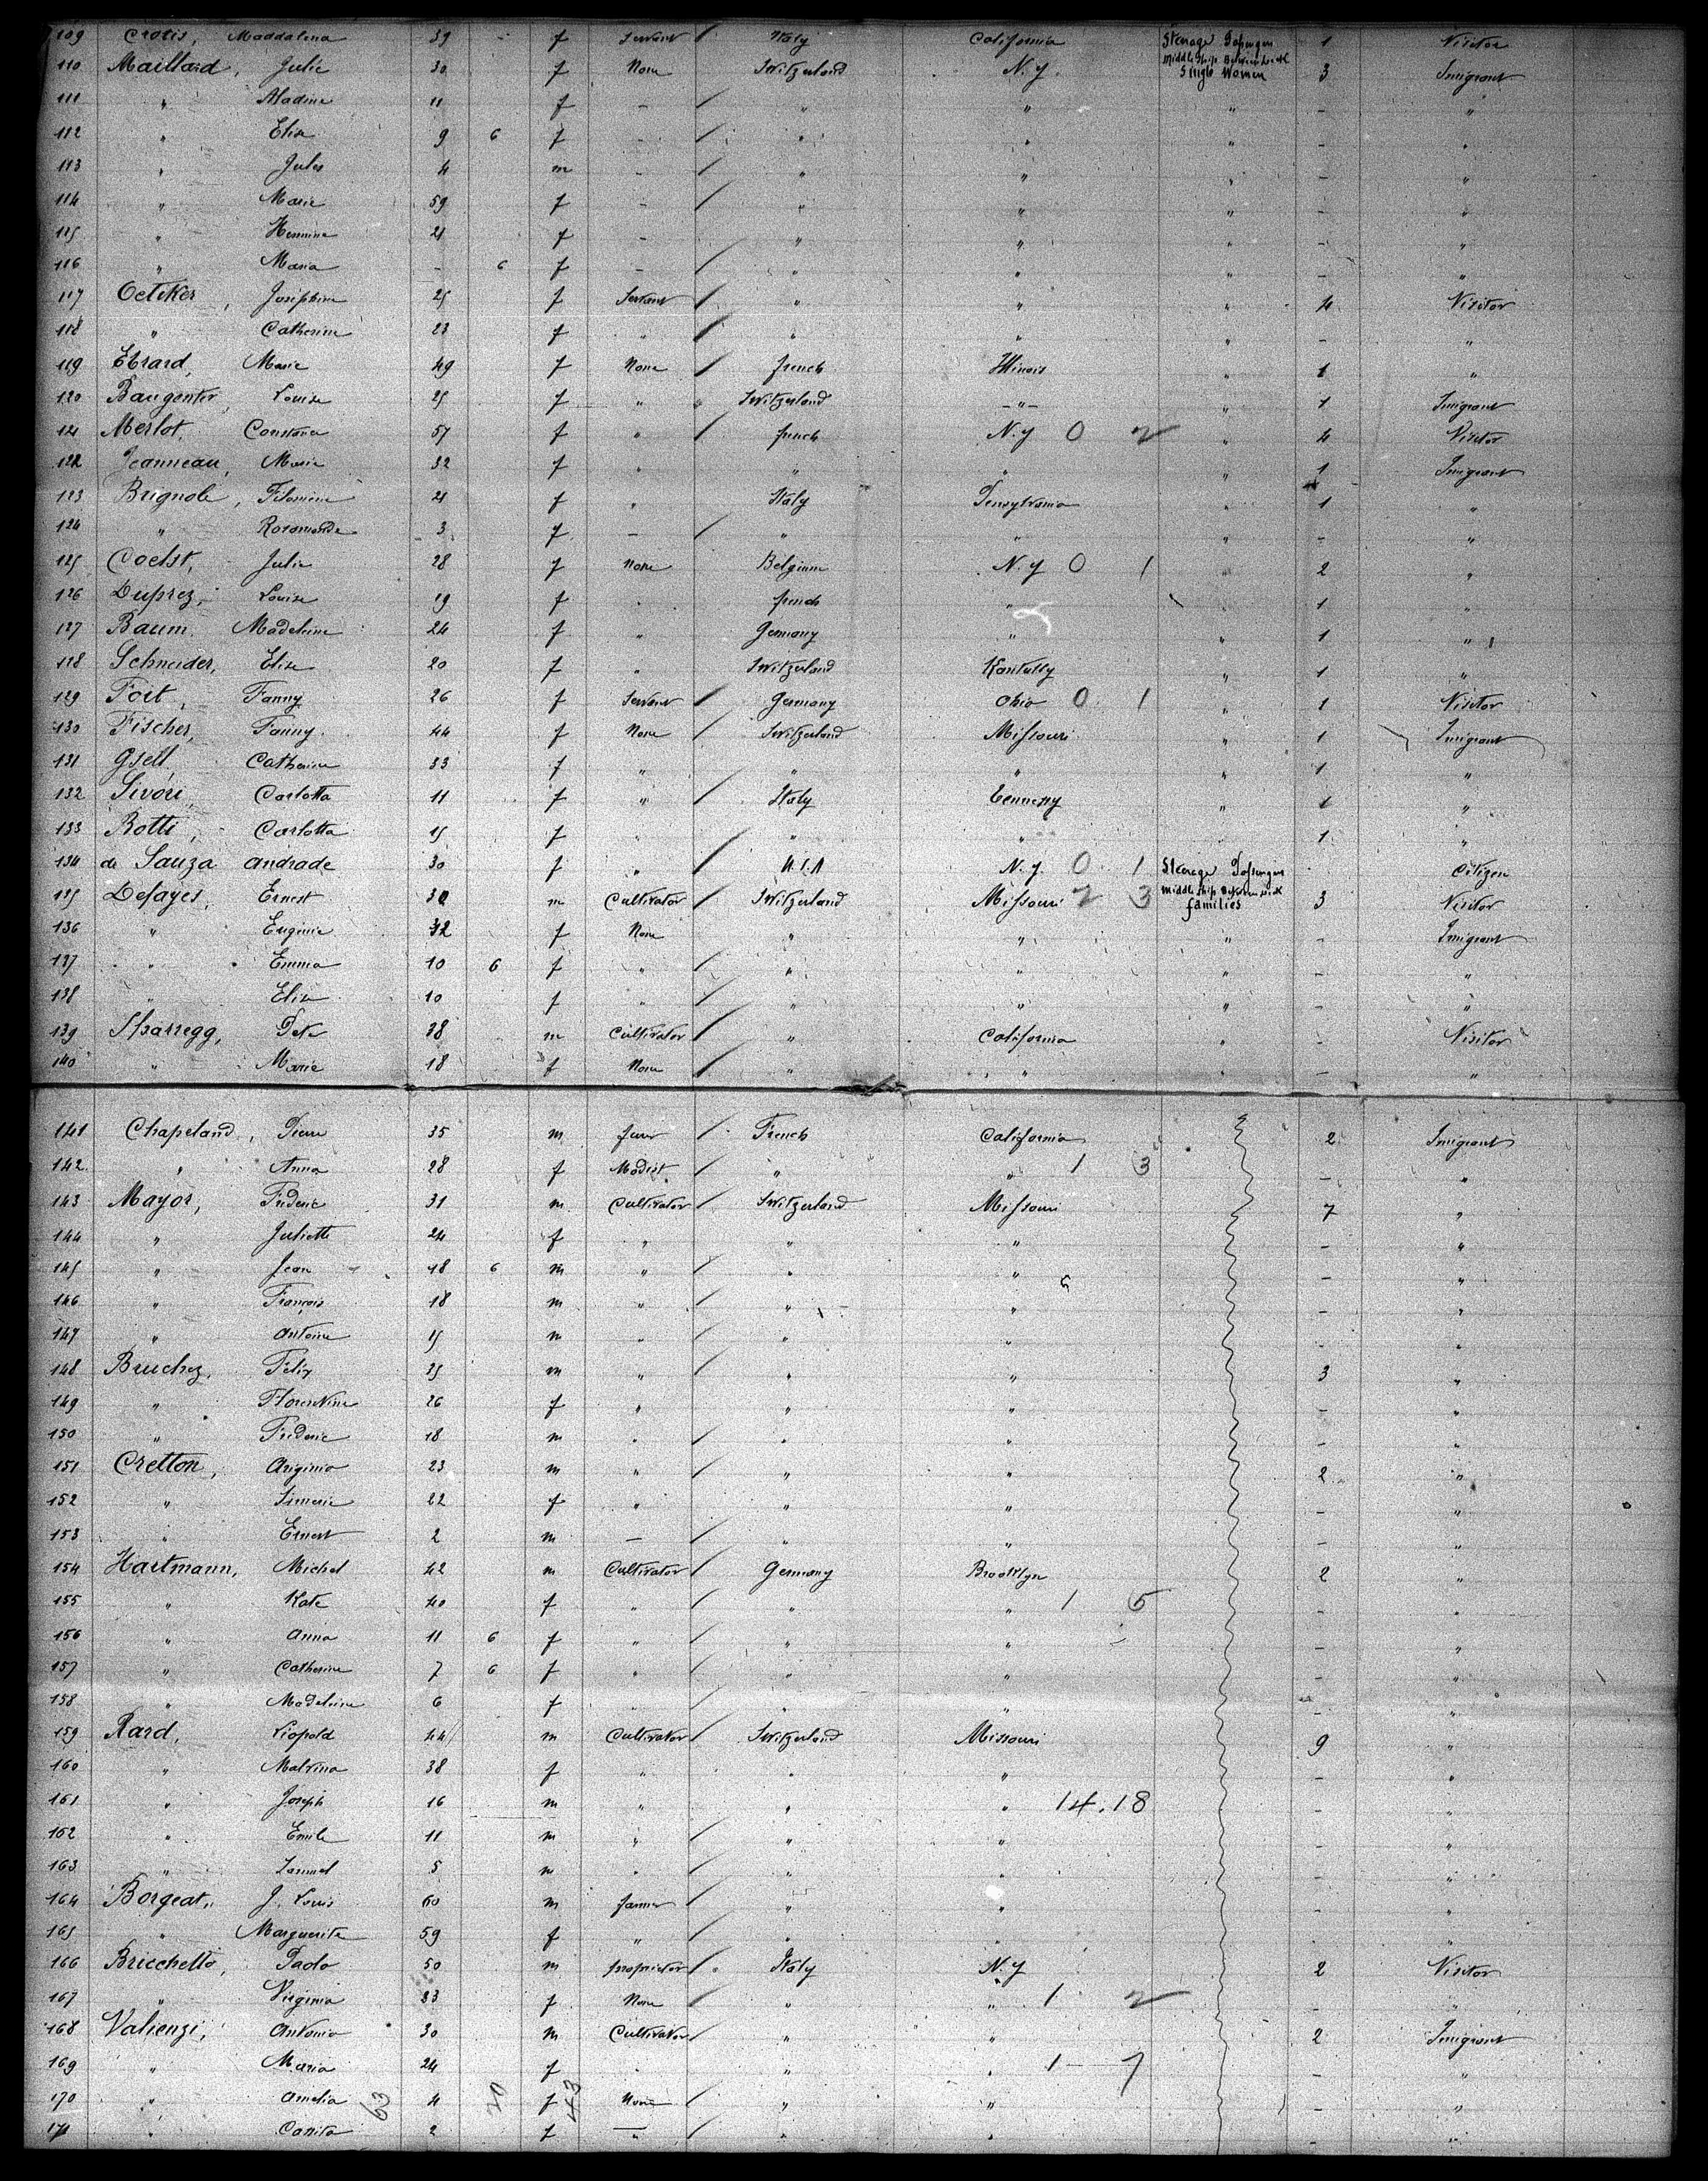 109 Crotis, Maddalena 39 - f Servant / Italy California Steerage Passengers 1 Visitor
110 Maillard, Julie 30 f None Switzerland N.y. Middle Ship Between deck Single Women 3 Imigrant
111 " Aladine 11 f - / " " " - "
112 " Elise 9 6 f - / " " " - "
113 " Jules 4 m - / " " " - "
114 " Marie 59 f - / " " " - "
115 " Hermine 21 f - " " " - "
116 " Maria - 6 f - / " " " - "
117 Oetiker, Josephine 25 f Servant / " " " 4 Visitor
118 " Catherine 23 f " / " " " - "
119 Ebrard, Marie 49 f None / french Illinois " 1 "
120 Baugenter, Louise 25 f " " Switzerland -"- " 1 Imigrant
121 Merlot, Constance 57 f " / french N.y 0 2 " 4 Visitor
122 Jeanneau, Marie 32 f " " " " 1 Imigrant
123 Brignole, Filomene 21 f " Italy Pensylvania " 1 "
124 " Rosomonde 3 f - / " " " - "
125 Coelst, Julie 28 f None Belgium N.y 0 1 " 2 "
126 Duprez, Louise 19 f " french " " 1 "
127 Baum, Madeleine 24 f " Germany " " 1 "
128 Schneider, Elise 20 f " Switzerland Kentully " 1 "
129 Fort, Fanny 26 f Servant / Germany Ohio 0 1 " 1 Visitor
130 Fischer, Fanny 44 f None / Switzerland Missouri " 1 Imigrant
131 Gsell Catherine 33 f " " " " 1 "
132 Sivori, Carlotta 11 f " / Italy Tennessy " 1 "
133 Botti, Carlotta 15 f " / " " " 1 "
134 de Sauza Andrade 30 f " / U.S.A N.y. 0 1 Steerage Passengers Citizen
135 Defayes, Ernest 30 m Cultivator / Switzerland Missouri 2 3 Middle Ship Between deck families 3 Visitor
136 " Eugenie 32 f None " " " - Imigrant
137 " Emma 10 6 f " / " " " - "
138 " Elise 10 f " / " " " - "
139 Sparregg, Peter 38 m Cultivator / " California " - Visitor
140 " Marie 18 f None / " " " - "
141 Chapeland, Pierre 35 m / French California 2 Imigrant
142 " Anna 28 f Modist / " " 1 3 - "
143 Mayor, Frederic 31 m Cultivator / Switzerland Missouri 7 "
144 " Juliette 24 f " / " " - "
145 " Jean 18 6 m " / " " - "
146 " François 18 m " / " " - "
147 " Antoine 15 m " / " " - "
148 Bruchez, Felix 25 m " / " " 3 "
149 " Florentine 26 f " / " " - "
150 " Frederic 18 m " / " " - "
151 Cretton, Origino 23 m " / " " 2 "
152 " 22 f " / " " - "
153 " Ernest 2 m - / " " - "
154 Hartmann, Michel 42 m Cultivator / Germany Brooklyn 2 "
155 " Kate 40 f " / " " 1 5 - "
156 " Anna 11 6 f " / " " - "
157 " Catherine 7 6 f " / " " - "
158 " Madeleine 6 f " / " " - "
159 Rard, Liopold 44 m Cultivator / Switzerland Missouri 9 "
160 " Malvina 38 f " " " - "
161 " Joseph 16 m " " " 14.18 - "
162 " Emile 11 m " / " " - "
163 " 5 m " / " " - "
164 Borgeat, J. Louis 60 m farmer / " " - "
165 " Marguerite 59 f " / " " - "
166 Bricchetto, Paolo 50 m proprietor / Italy N.y 2 Visitor
167 " Virginia 33 f None / " " 1 2 - "
168 Valienzi, Antonio 30 m Cultivator / " " 2 Imigrant
169 " Maria 24 f " " " 1 7 - "
170 " Amelia 4 f None / " " - "
171 " Canita 2 f - / " " - "
63 20 43